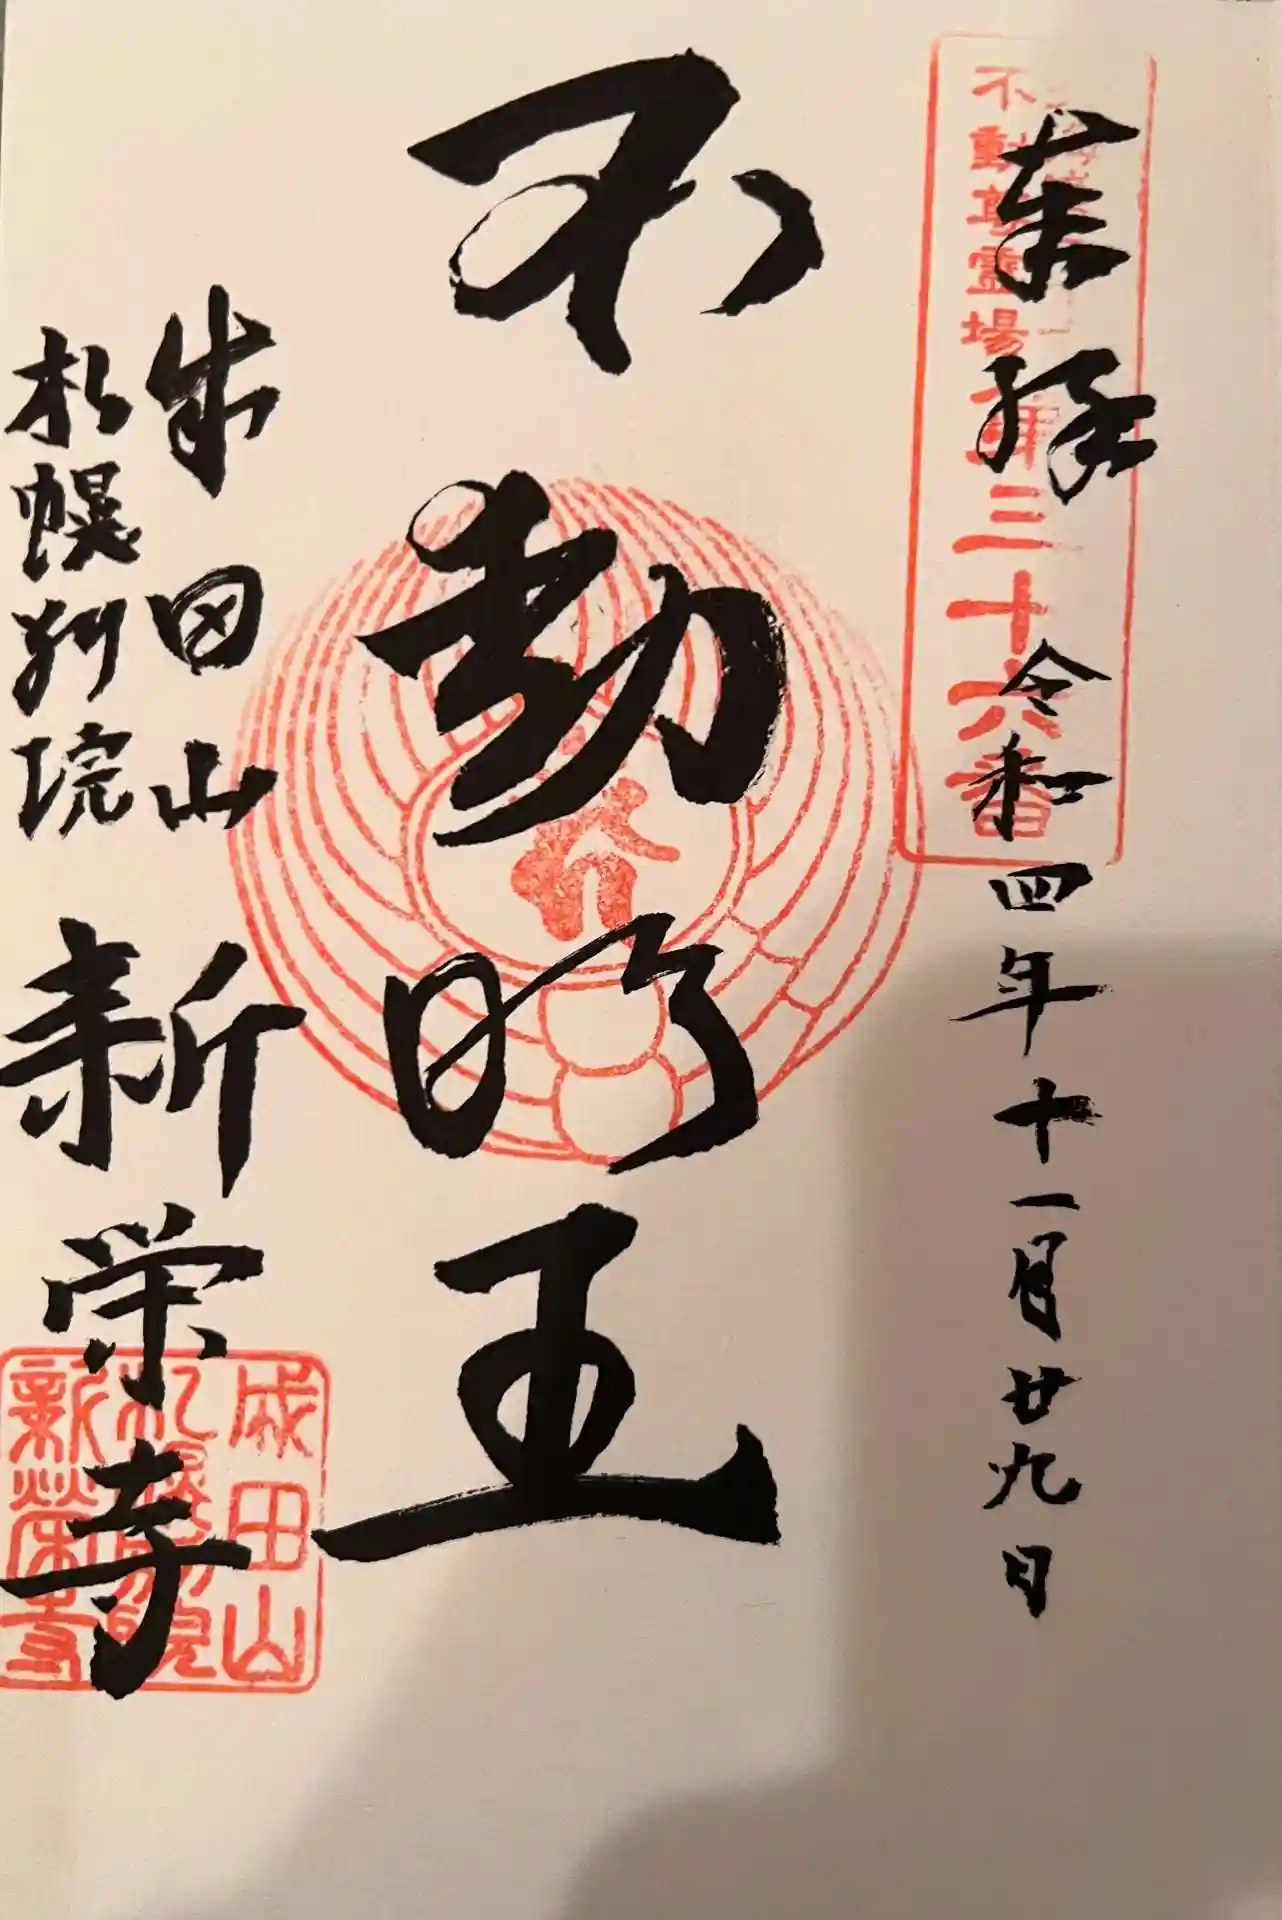 奉拝 令和四年十一月廿九日
不動尊霊場
第三十六番
不動明王
成田山
札幌別院
新栄寺
成田山
札幌別院
新栄寺